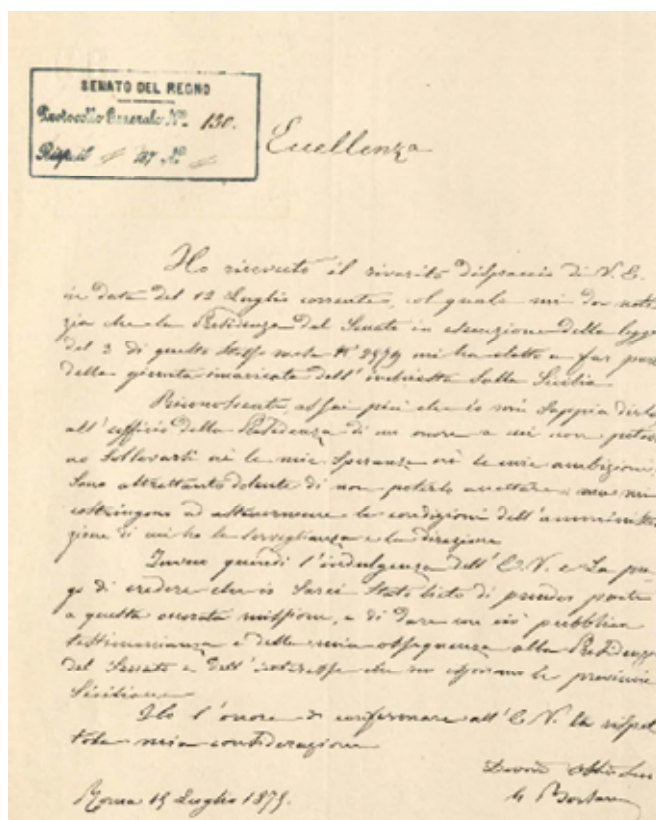 SENATO DEL REGNO
Protocollo Generale N° 130.
Risp. il 187 N°
Eccellenza
Ho ricevuto il riverito dispaccio di V. E.
in data del 12 Luglio corrente, col quale mi dà noti-
zia che la Presidenza del Senato in esecuzione della legge
del 3 di questo stesso mese N° 2579 mi ha eletto a far parte
della giunta incaricata dell'inchiesta sulla Sicilia.
Riconoscente, assai più che io mi sappia dirlo
all'ufficio della Presidenza di un onore a cui non poteva-
no sollevarsi nè le mie speranze nè le mie ambizioni,
sono altrettanto dolente di non poterlo accettare, ma mi
costringono ad astenermene le condizioni dell'amministra-
zione di cui ho la sorveglianza e la direzione
quindi l'indulgenza dell'E. V. e La pre-
go di credere che io sarei stato lieto di prender parte
a questa onorata missione, e di dare con ciò pubblica
testimonianza e della mia ossequenza alla Presidenza
del Senato e dell'interesse che m'ispirano le provincie
Siciliane
Ho l'onore di confermare all'E. V. la rispet-
tosa mia considerazione
Devmo
Roma 15 Luglio 1875.